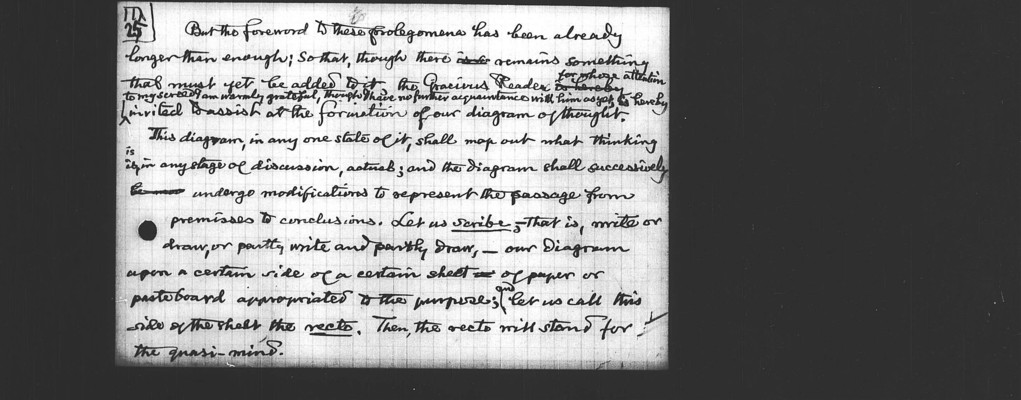 25
But the foreword to these prolegomena has been already
longer than enough; so that, though there remains something
that must yet be added to it the Gracious Reader to hereby
for whose attention
to my screed I am warmly grateful, though I have no further acquaintance with him as yet, is hereby
invited to assist at the formation of our diagram of thought.
This diagram, in any one state of it, shall map out what thinking
is
in any stage of discussion, actual; and the diagram shall successively
undergo modifications to represent the passage from
premisses to conclusions. Let us scribe,—that is, write or
draw, or partly write and partly draw,— our diagram
upon a certain side of a certain sheet of paper or
pasteboard appropriated to the purpose; and let us call this
side of the sheet the recto. Then, the recto will stand for
the quasi-mind.